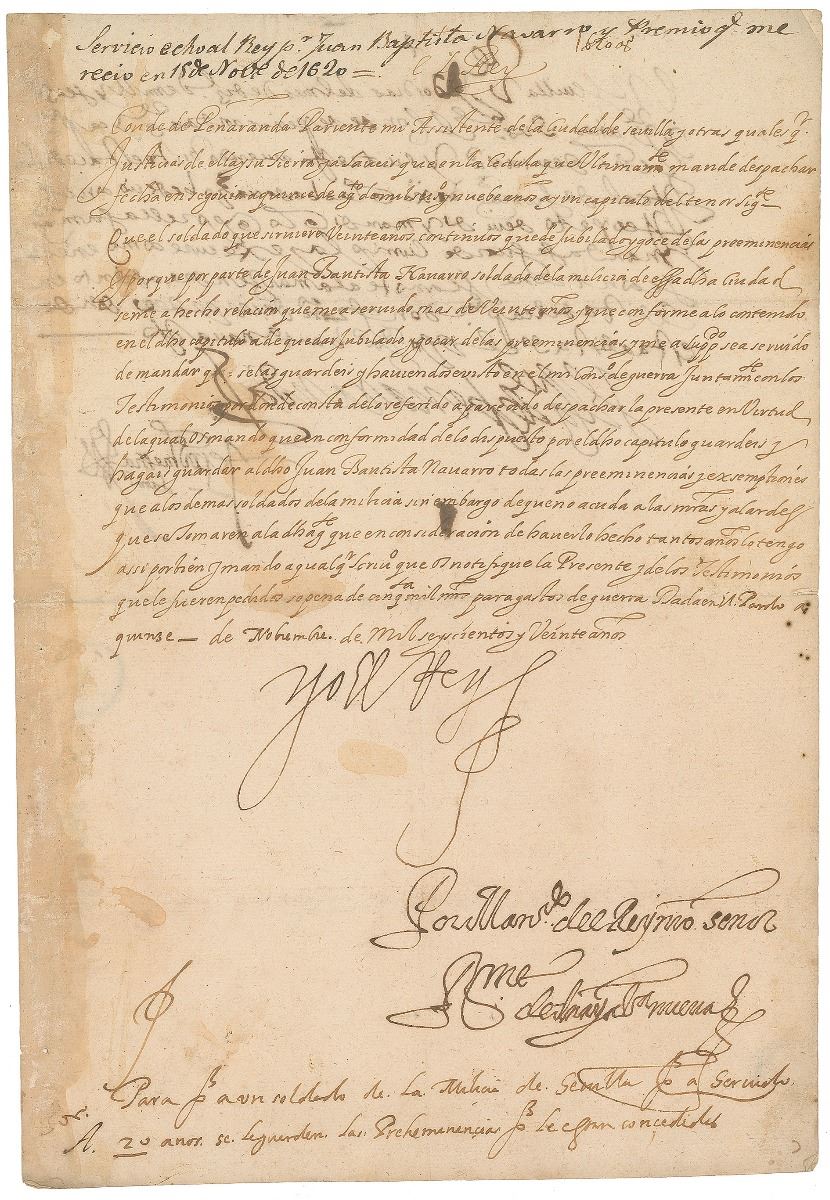 Servicio echo al Rey pr. Juan Baptista Navarro y Premio q. me
recio en 15 de Nove. de 1620 =
El Rey
Conde de Peñaranda Pariente mi Assistente de la Ciudad de sevilla y otras quales qr.
Justicias de ella y su Tierra que en la Cedula que Ultimamte. mande despachar
fecha en a quince de agto. de mil y nuebe años ay un capitulo del tenor sigte.
Que el soldado que sirviere Veinte años continuos quede Jubilado y goce de las preeminencias
Y porque por parte de Juan Bautista Navarro soldado de la milicia de essa dha Ciudad
se me a hecho relación que me a servido mas de Veinte años y que conforme a lo contenido
en el dho capitulo a de quedar Jubilado y gozar de las preeminencias y me a suppdo. sea servido
de mandar q. se las guardeis y haviendose visto en el mi Conso. de guerra Juntamte. con los
Testimonios por donde consta de lo referido a parecido despachar la presente en Virtud
de la qual os mando que en conformidad de lo dispuesto por el dho capitulo guardeis y
hagais guardar al dho Juan Bautista Navarro todas las preeminencias y exsemptiones
que a los demas soldados de la milicia sin embargo de que no acuda a las mras y alardes
que se Tomaren a la dha que en consideración de haverlo hecho tantos años lo tengo
assi por bien y mando a qualqr. scrivo. que os notifique la Presente y de los Testimonios
que le fueren pedidos so pena de cinqta. mil mrs para gastos de guerra Dada en el Pardo a
quinse — de Nobiembre. de Mil seyscientos y Veinte años
yo el Rey
Por Mando. del Rey nro. señor
Bme.
de Anaya Villanueva
Para q a un soldado de la Milicia de Sevilla q a Servido
20 anos. se le guarden. las Preheminencias q le estan concedidas